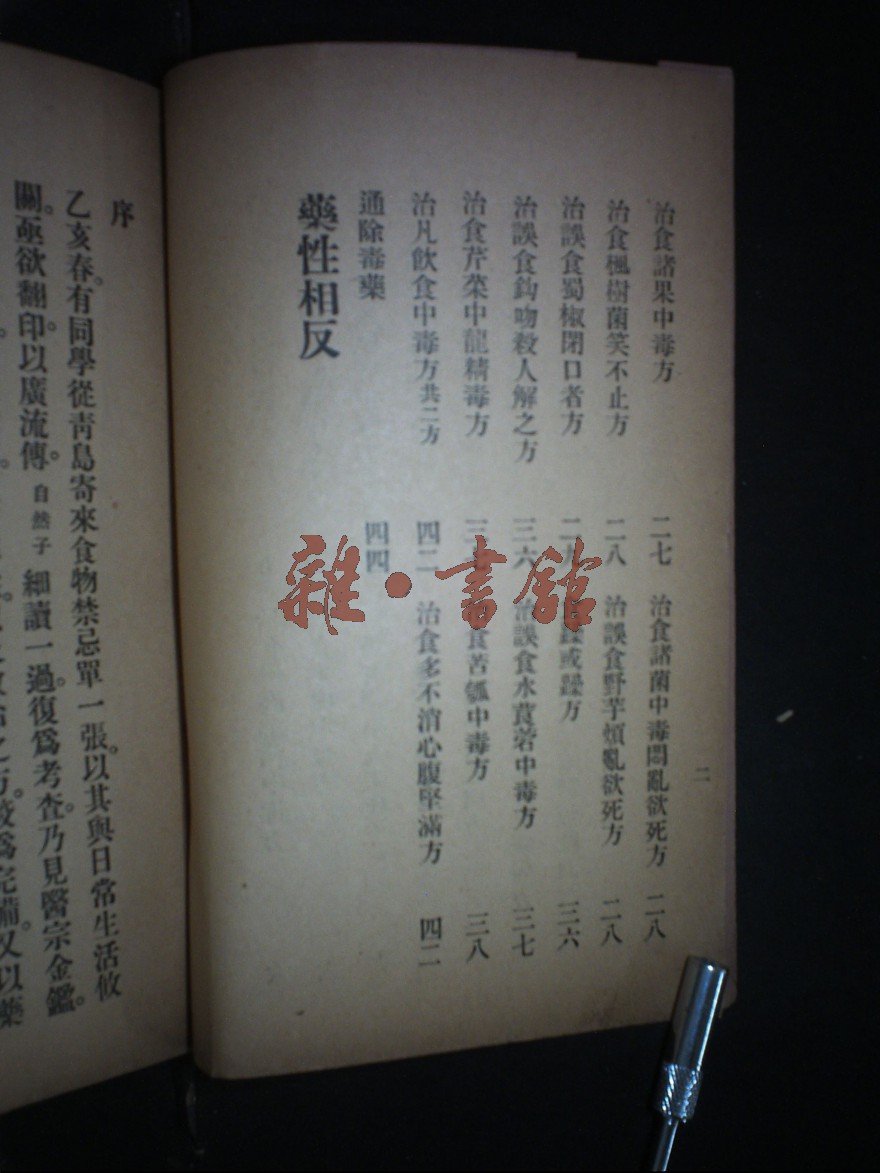 二
治食諸果中毒方 二七 治食諸菌中毒悶亂欲死方 二八
治食楓樹菌笑不止方 二八 治誤食野芋煩亂欲死方 二八
治誤食蜀椒閉口者方 二 或躁方 三六
治誤食鈎吻殺人解之方 三六 治誤食水莨菪中毒方 三七
治食芹菜中龍精毒方 三 食苦瓠中毒方 三八
治凡飲食中毒方共二方 四二 治食多不消心腹堅滿方 四二
通除毒藥 四四
藥性相反
雜·書館
序
乙亥春。有同學從靑島寄來食物禁忌單一張。以其與日常生活攸
關。亟欲翻印。以廣流傳。自然子細讀一過。復爲考查。乃見醫宗金鑑。
之方。較爲完備。又以藥